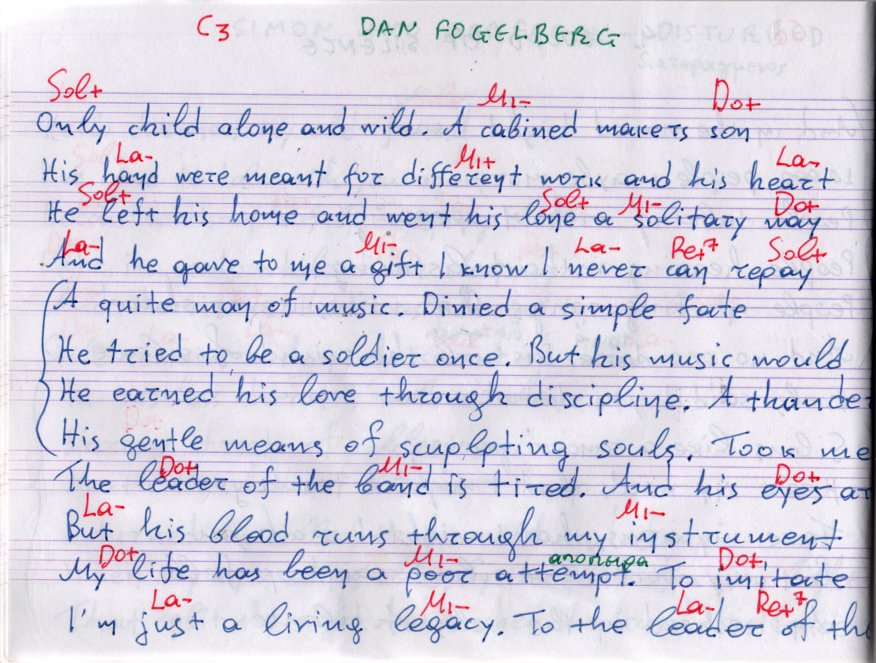 C3 DAN FOGELBERG
Sol+ Mi- Do+
Only child alone and wild. A cabined makers son
La- Mi+ La-
His hand were meant for different work and his heart
Sol+ Sol+ Mi- Do+
He left his home and went his lone a solitary way
La- Mi- La- Re+7 Sol+
And he gave to me a gift I know I never can repay
A quite man of music. Dinied a simple fate
He tried to be a soldier once. But his music would
He earned his love through discipline. A thunde
His gentle means of scuplpting souls. Took me
Do+ Mi- Do+
The leader of the band is tired. And his eyes ar
La- Mi-
But his blood runs through my instrument
Do+ Mi- απόπειρα Do+
My life has been a poor attempt. To imitate
La- Mi- La- Re+7
I'm just a living legacy. To the leader of the